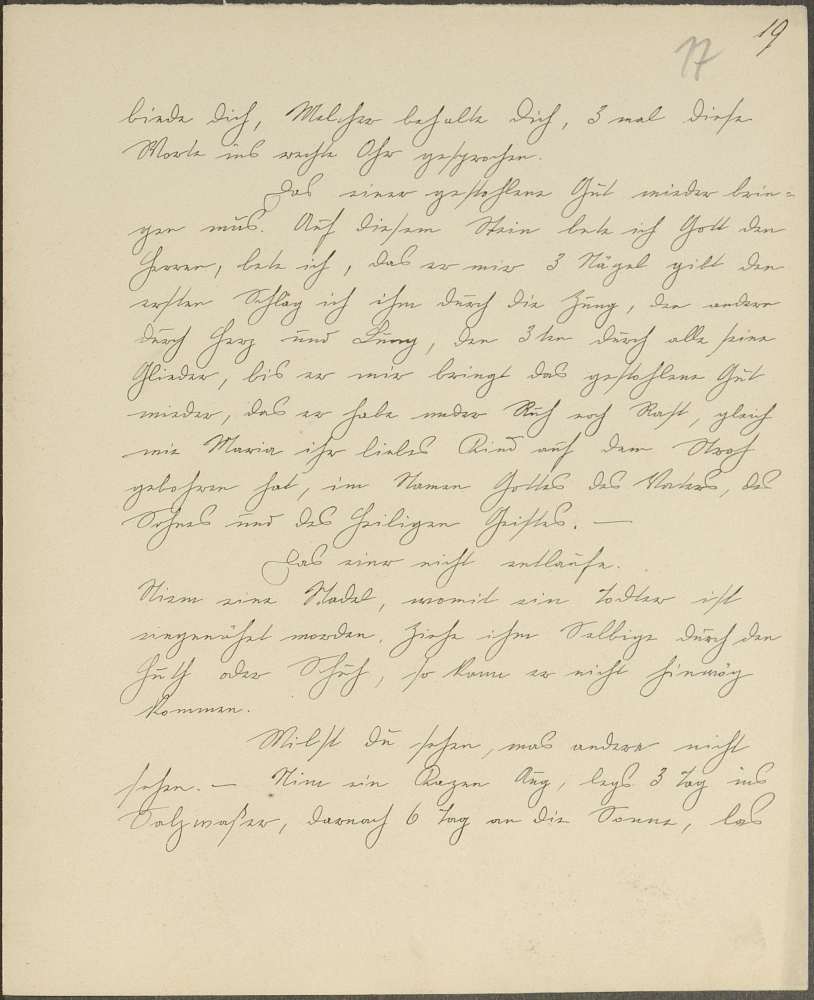 19
17
biede dich, Melcher behalte dich, 3 mal diese
Worte ins rechte Ohr gesprochen.
Das einer gestohlene Gut wieder brin=
gen mus. Auf diesem Stein bete ich Gott den
Herren, bete ich, das er mir 3 Nägel gibt den
ersten Schlag ich ihm durch die Zung, den andern
durch Herz und Lung, den 3ten durch alle seine
Glieder, bis er mir bringt das gestohlene Gut
wieder, das er habe weder Ruh noch Rast, gleich
wie Maria ihr liebes Kind auf dem Stroh
gebohren hat, im Namen Gottes des Vaters, des
Sohnes und des heiligen Geistes. —
Das einer nicht entlaufe.
Niem eine Nadel, womit ein Todter ist
eingenähet worden. Ziehe ihm Selbige durch den
Huth oder Schuh, so kann er nicht hinwäg
kommen.
Wilst du sehen, was andere nicht
sehen. — Nim ein Kazen Aug, legs 3 Tag ins
Salzwaßer, darnach 6 Tag an die Sonne, las